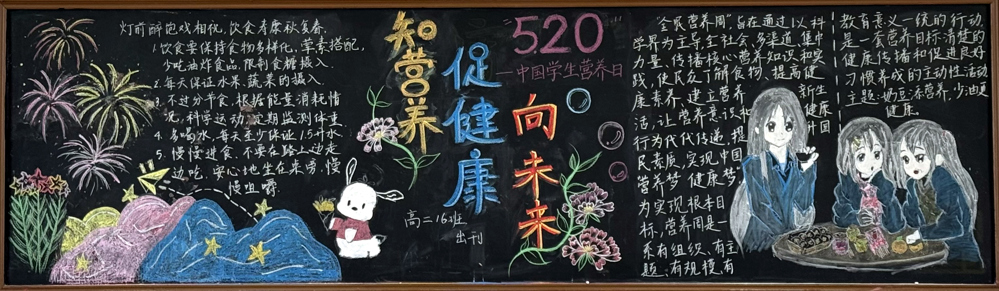 灯前醉饱戏相祝,饮食寿康秋复春.
1.饮食要保持食物多样化,荤素搭配,
少吃油炸食品,限制食糖摄入.
2.每天保证水果、蔬菜的摄入
3.不过分节食,根据能量消耗情
况,科学运动,定期监测体重.
4.多喝水,每天至少保证1.5升水.
5.慢慢进食,不要在路上边走
边吃,安心地坐在桌旁,慢
慢咀嚼
知营养
促健康
高二16班
出刊
"520"
—中国学生营养日
向未来
"全民营养周"旨在通过以科
学界为主导,全社会、多渠道、集中
力量、传播核心营养知识和实
践,使民众了解食物、提高健
康素养、建立营养新生
活,让营养意识和健康
行为代代传递,提
民素质,实现中国
营养梦 健康梦
为实现根本目
标,营养周是一
系有组织、有主
题、有规模、有
教育意义一统的行动,
是一套营养目标清楚的
健康传播和促进良好
习惯养成的主动性活动
主题:奶豆添营养,少油更
健康.